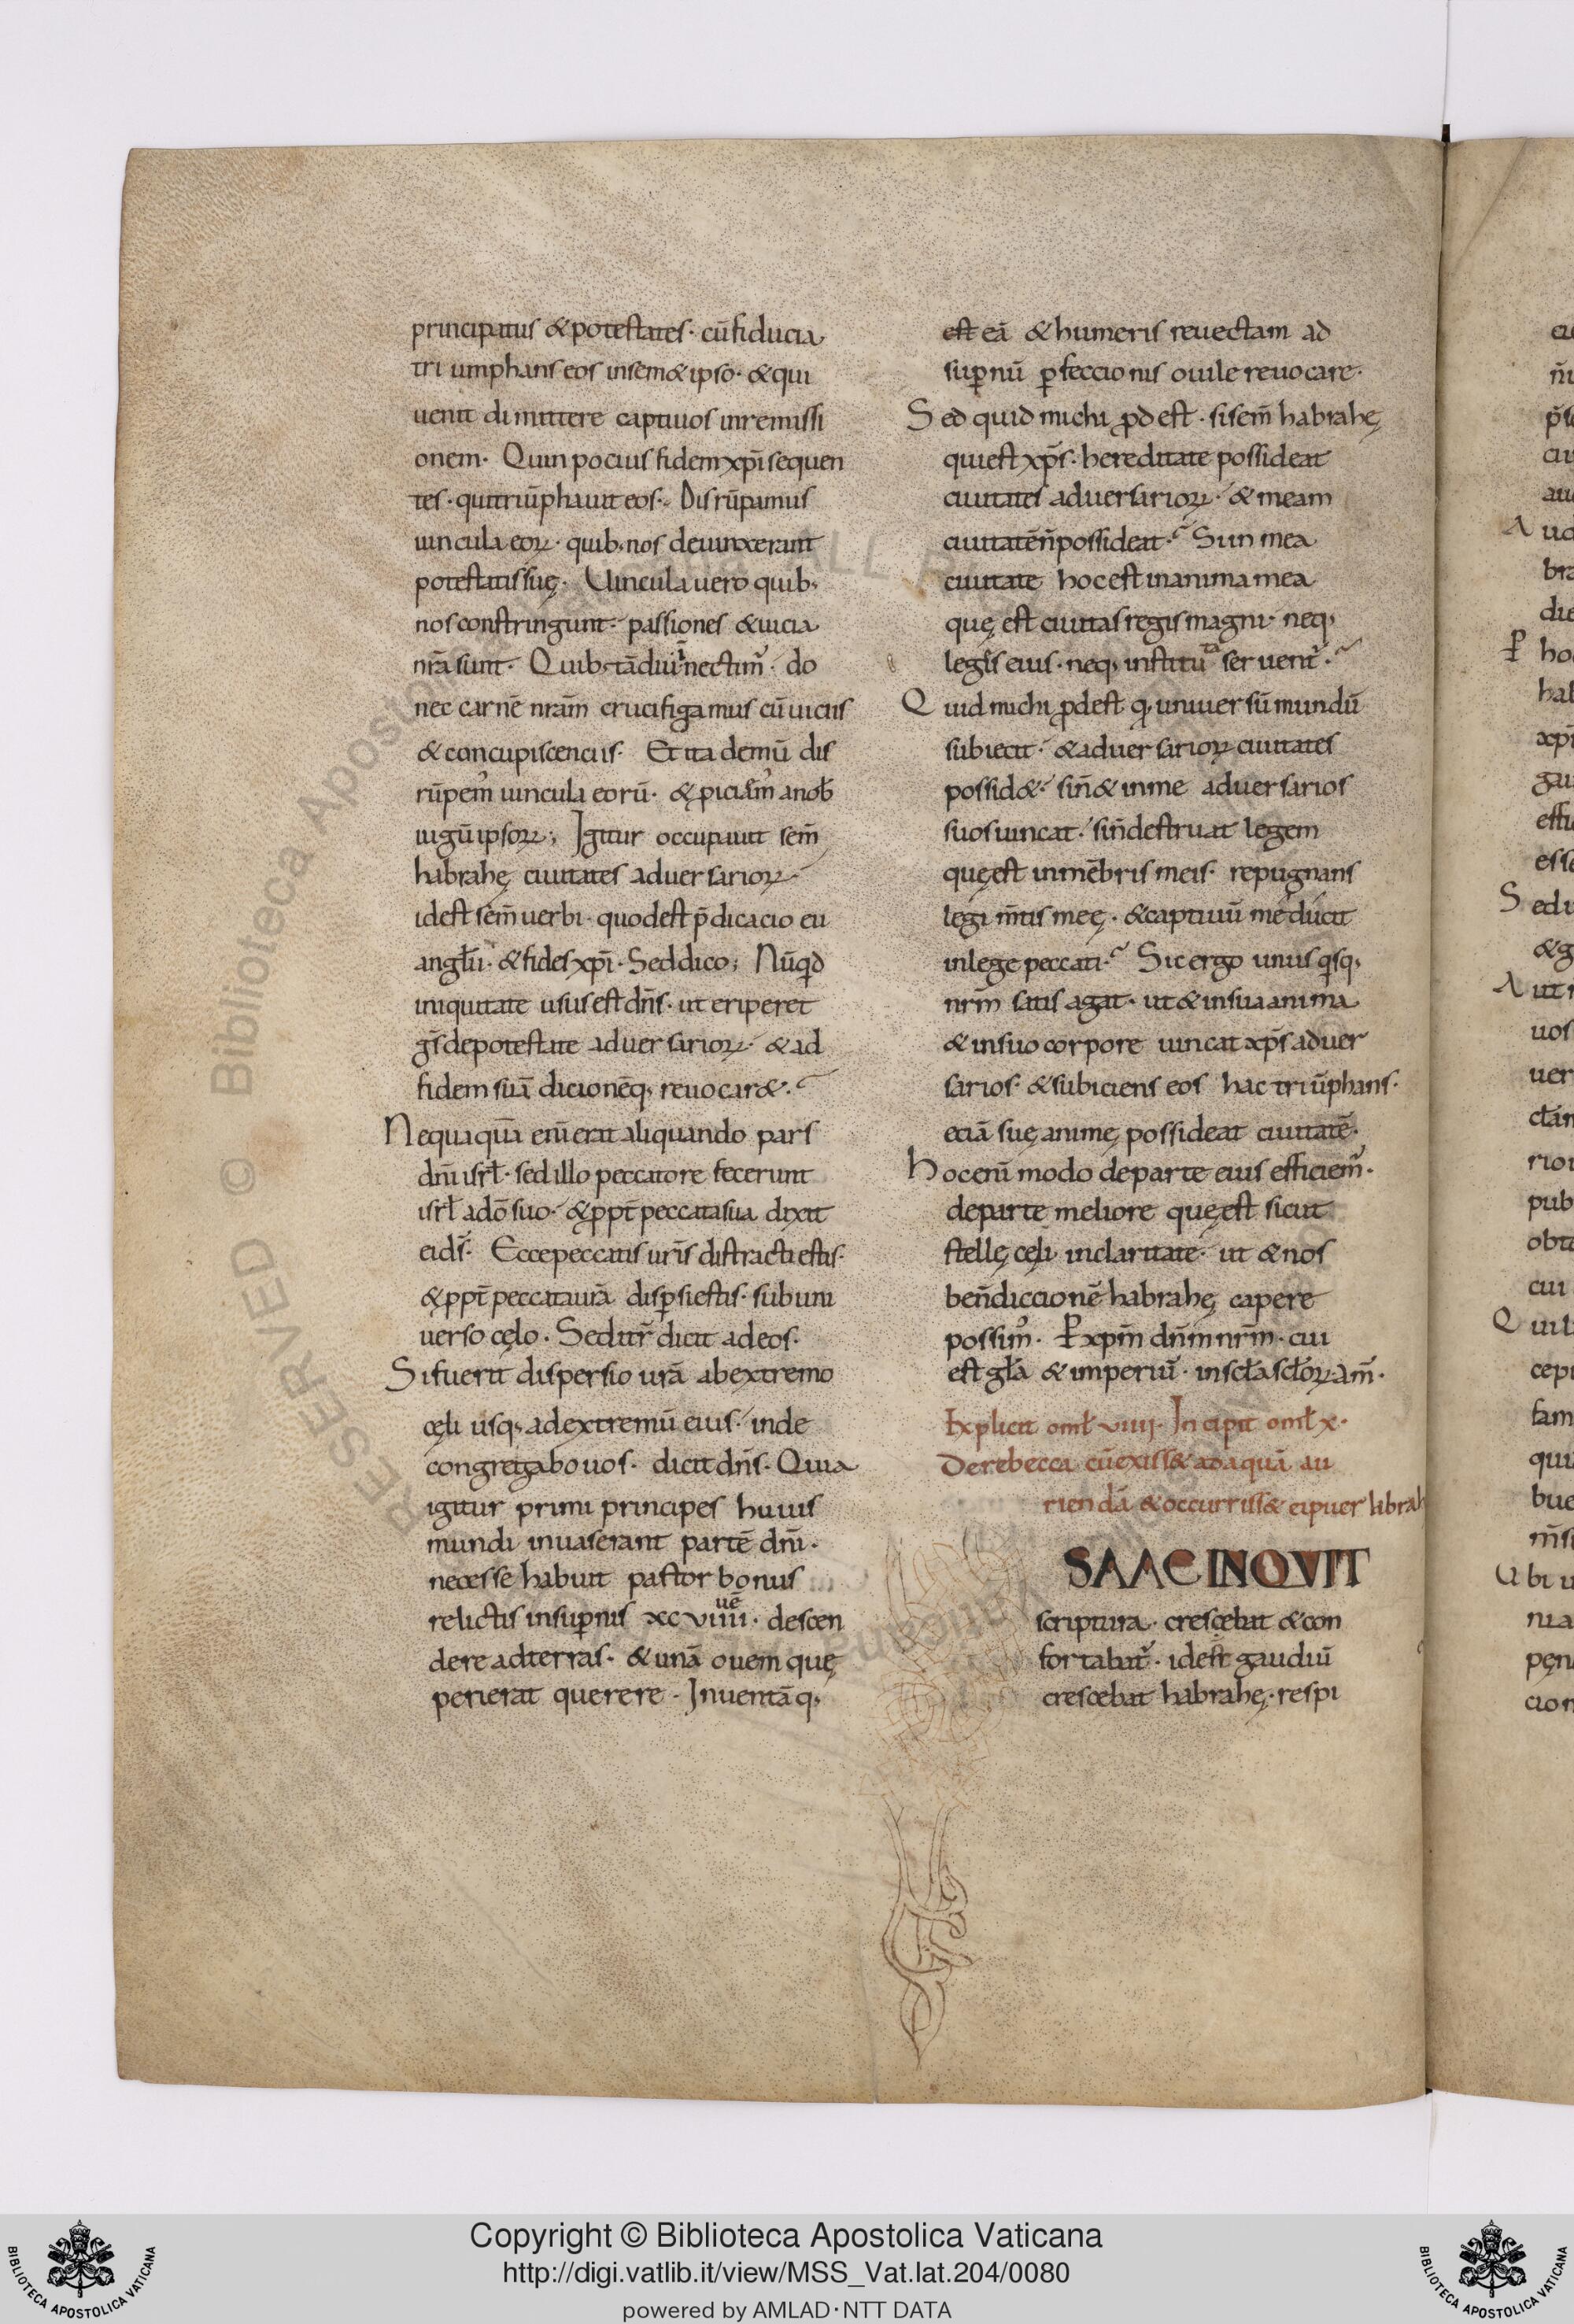 principatus & potestates· cū fiducia
triumphans eos in sem&ipso· & qui
uenit dimittere captiuos in remissi
onem· Quin pocius fidem xp̄i sequen
tes· qui triūphauit eos· Disrūpamus
uincula eoꝝ· quib; nos deuinxerant
potestatis suę· Uincula uero quib;
nos constringunt· passiones & uicia
nr̄a sunt· Quib; tādiu uı̄nectim᷒· do
nec carnē nr̄am crucifigamus cū uiciis
& concupiscenciis· Et ita demū dis
rūpem᷒ uincula eorū· & piciam᷒ a nob̄
iugū ipsoꝝ; Igitur occupauit sem̄
habrahę ciuitates aduersarioꝝ·
id est sem̄ uerbi· quod est p̄dicacio eu
angl̄ii· & fides xp̄i· Sed dico; Nūqd
iniquitate usus est dn̄s· ut eriperet
gs̄ de potestate aduersarioꝝ· & ad
fidem suā dicionēq; reuocar&·
Nequaquā eni̅ erat aliquando pars
dn̄i isrl̄· sed illo peccatore fecerunt
isrl̄ a dō suo· & ppt̄ peccata sua dixit
ei ds̄· Ecce peccatis ur̄is distracti estis·
& ppt̄ peccata ur̄a disp̱si estis· sub uni
uerso cęlo· Sed itr̄ dicit ad eos·
Si fuerit dispersio ur̄a ab extremo
cęli usq; ad extremū eius· inde
congregabo uos· dicit dn̄s· Quia
igitur primi principes huius
mundi inuaserant partē dn̄i·
necesse habuit pastor bonus
relictis in sup̱nis xcviiii uē· descen
dere ad terras· & unā ouem quę
perierat querere· Inuentāq;
est eā & humeris reuectam ad
sup̱nū p̱feccionis ouile reuocare·
Sed quid michi ꝓdest· si sem̄ habrahę
qui est xp̄s· hereditate possideat
ciuitates aduersarioꝝ· & meam
ciuitatē n̄ possideat· Si in mea
ciuitate hoc est in anima mea
quę est ciuitas regis magni· neq;
leg̅s eius· neq; institu ta seruent᷒·
Quid michi ꝓdest· q uniuersū mundū
subiecit· & aduersarioꝝ ciuitates
possid&· si n̄ & in me aduersarios
suos uincat· si n̄ destruat legem
quę est in mēbris meis· repugnans
legi m̄tis meę· & captiuū me ducit
in lege peccati· Sic ergo unus qsq;
nrm̄ satis agat· ut & in sua anima
& in suo corpore uincat xp̄s aduer
sarios· & subiciens eos hac triūphans·
eciā suę animę possideat ciuitatē·
Hoc eni̅ modo de parte eius efficiem᷒·
de parte meliore quę est sicut
stellę cęli in claritate· ut & nos
ben̄diccionē habrahę capere
possim᷒· P̱ xp̄m dn̄m nrm̄· cui
est gl̄a & imperiū· in scl̄a scl̄oꝝ am̄·
Explicit oml̄ viiij· Incipit oml̄ x·
De rebecca cū exiss& ad aquā au
riendā & occurriss& ei puer librah
SAAC INQVIT
scriptura· crescebat & con
fortabat᷒· id est gaudiū
crescebat habrahę· respi
Copyright © Biblioteca Apostolica Vaticana
http://digi.vatlib.it/view/MSS_Vat.lat.204/0080
powered by AMLAD·NTT DATA
BIBLIOTECA APOSTOLICA VATICANA
BIBLIOTECA APOSTOLICA VATICANA